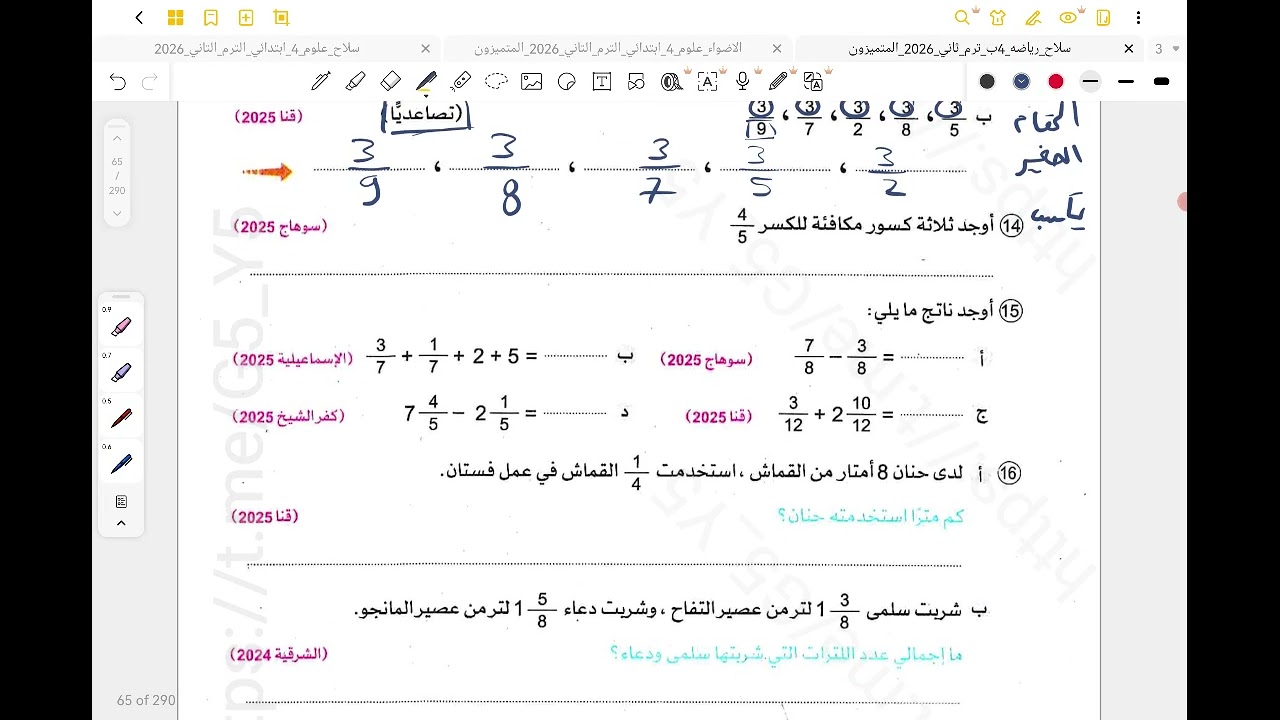 سلاح_رياضه_4ب_ترم_ثاني_2026_المتميزون × الاضواء_علوم_4_ابتدائي_الترم_الثاني_2026_المتميزون × سلاح_علوم_4_ابتدائي_الترم_الثاني_2026 × 3
ب 3/5 ، 3/8 ، 3/2 ، 3/7 ، 3/9 (تصاعديًّا) (قنا 2025)
المقام
الصغير
يكسب
3/9 ، 3/8 ، 3/7 ، 3/5 ، 3/2
14 أوجد ثلاثة كسور مكافئة للكسر 4/5 (سوهاج 2025)
15 أوجد ناتج ما يلي:
أ 7/8 − 3/8 = (سوهاج 2025)
ب 3/7 + 1/7 + 2 + 5 = (الإسماعيلية 2025)
ج 3/12 + 2 10/12 = (قنا 2025)
د 7 4/5 − 2 1/5 = (كفر الشيخ 2025)
16 أ لدى حنان 8 أمتار من القماش ، استخدمت 1/4 القماش في عمل فستان.
كم مترًا استخدمته حنان؟ (قنا 2025)
ب شربت سلمى 1 3/8 لتر من عصير التفاح ، وشربت دعاء 1 5/8 لتر من عصير المانجو.
ما إجمالي عدد اللترات التي شربتها سلمى ودعاء؟ (الشرقية 2024)
65 / 290
0.9
0.7
0.5
0.6
65 of 290
https://t.me/G5_Y5